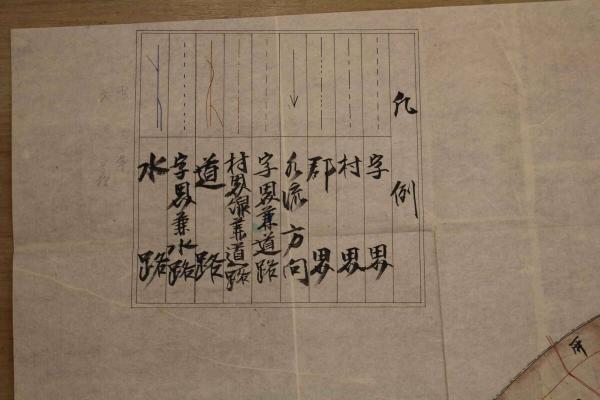 凡例
字界
村界
郡界
水流方向
字界兼道路
村界兼道路
道路
字界兼水路
水路